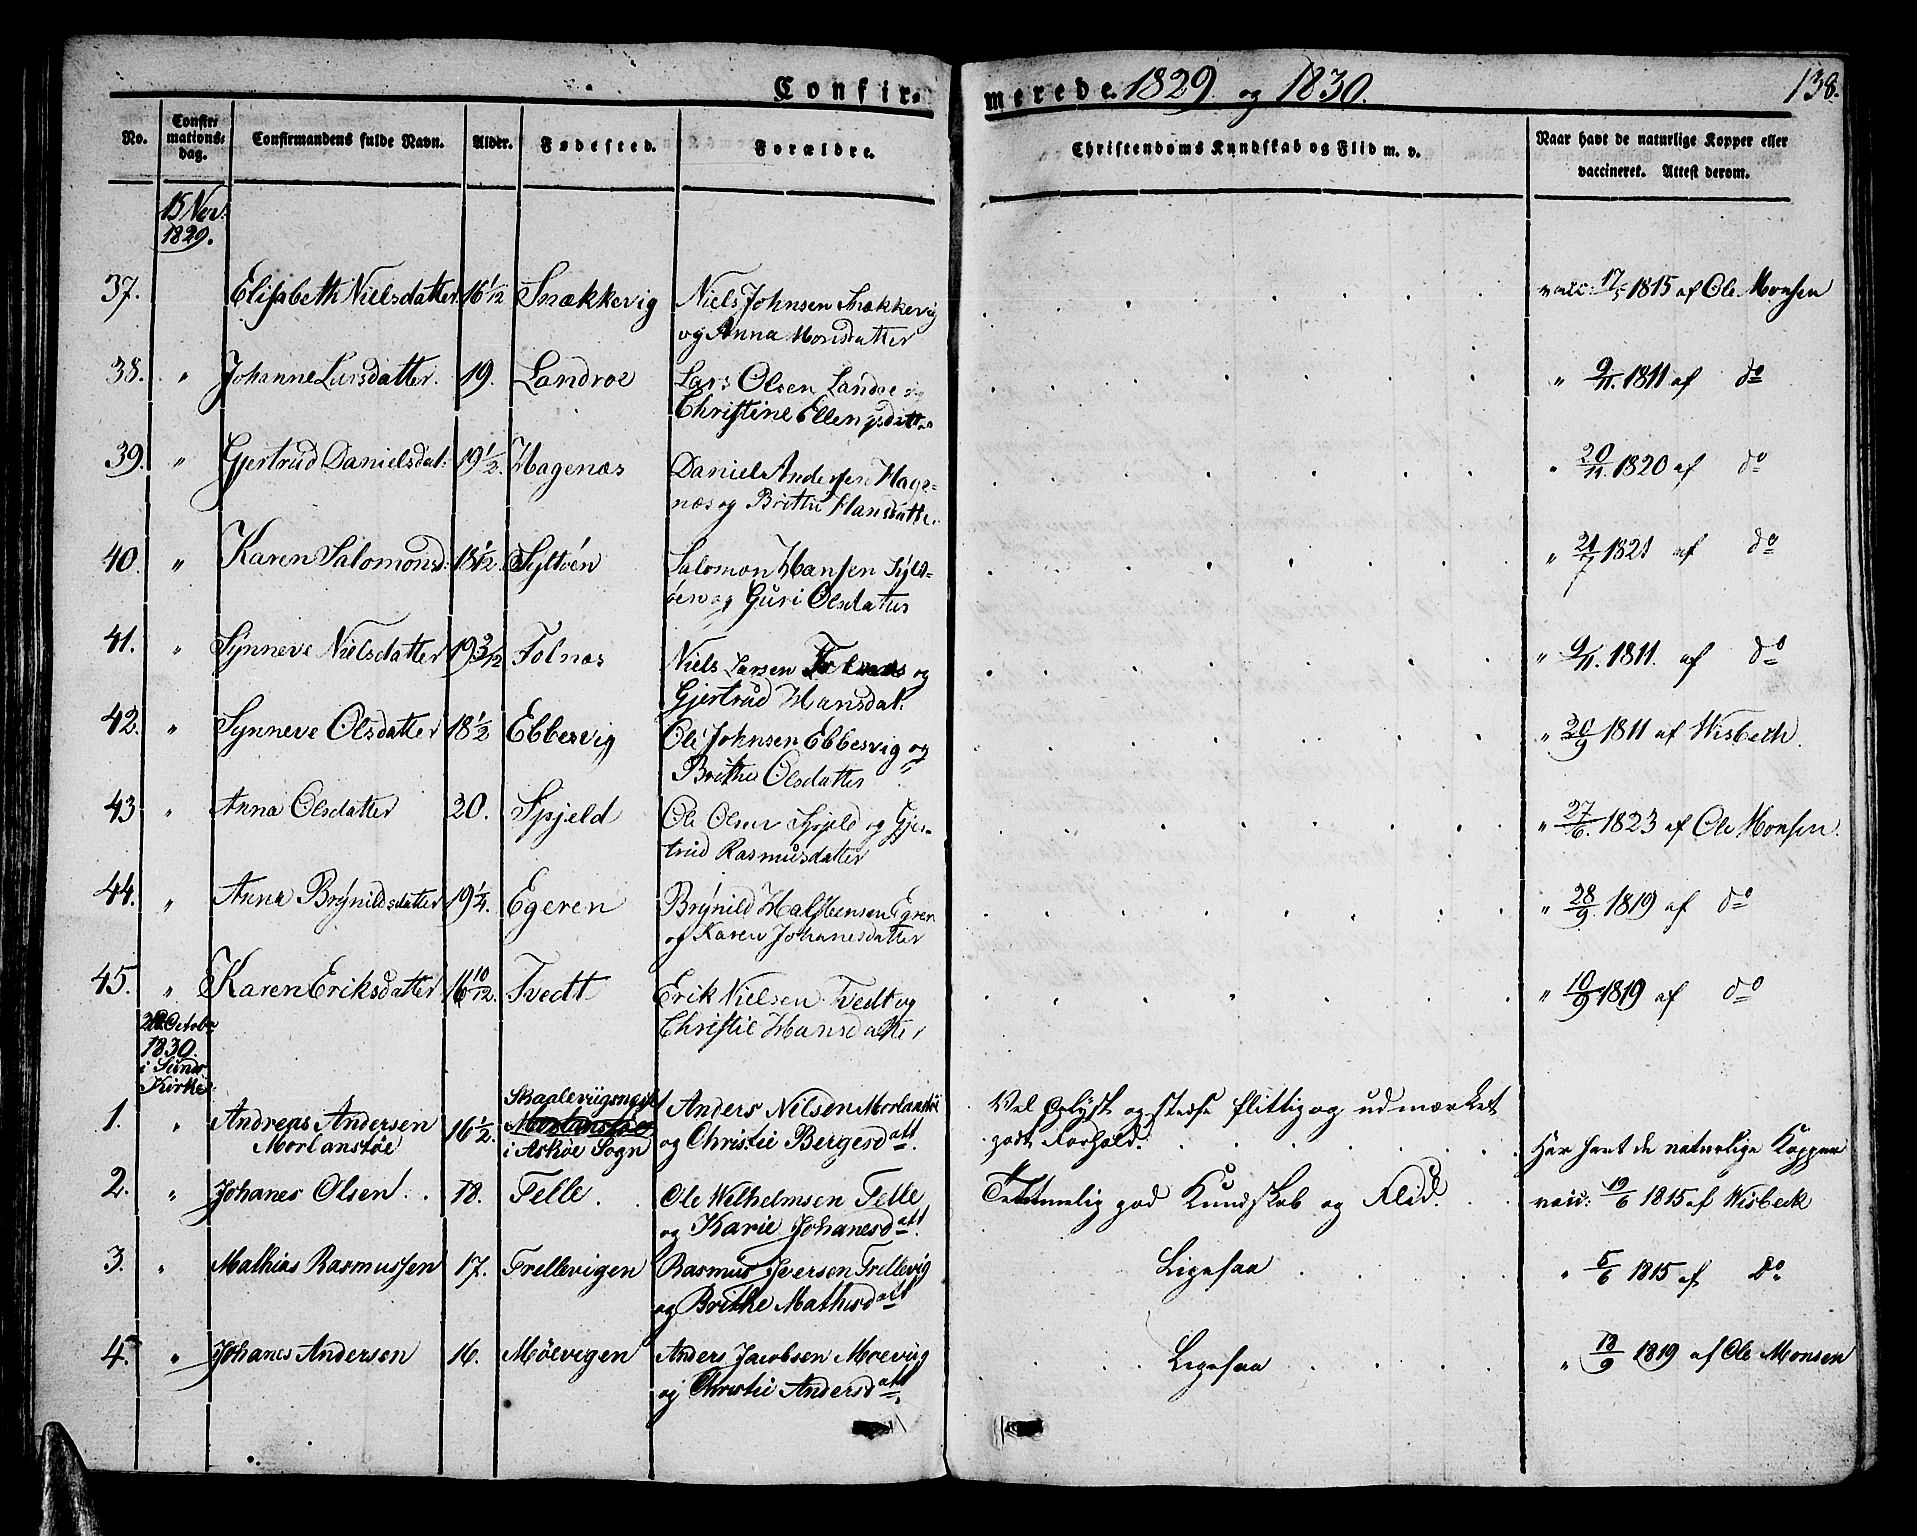 Confir-
merede. 1829 og 1830.
138.
No.
Confir
mations-
dag.
Confirmandens fulde Navn.
Alder.
Fødested.
Forældre.
Christendoms Kundskab og Flid m. v.
Naar havt de naturlige Kopper eller
vaccineret. Attest derom.
15 Nov.
1829.
37. Elisabeth Nielsdatter 16 1/12 Snækkevig Niels Johnsen Snækkevig vacc: 17/5 1815 af Ole Monsen
og Anna Monsdatter
38. " Johanne Larsdatter. 19. Landroe Lars Olsen Landroe og " 9/11. 1811 af do
Christine Ellengsdatter
39. " Gjertrud Danielsdat: 19 1/2 Hagenæs Daniel Andersen Hage- " 20/11. 1820 af do
næs og Brithe Hansdatter
40. " Karen Salomonsd: 18 1/12 Syltöen Salomon Hansen Sylt- " 21/7 1821 af do
öen og Guri Olsdatter
41. " Synneve Nielsdatter 19 3/12 Tolnæs Niels Larsen Tolnæs og " 9/11. 1811. af do
Gjertrud Hansdat:
42. " Synneve Olsdatter 18 1/2 Ebbesvig Ole Johnsen Ebbesvig og " 20/9 1811 af Wisbech.
Brithe Olsdatter
43 " Anna Olsdatter 20. Spjeld Ole Olsen Spjeld og Gjer- " 27/6. 1823 af Ole Monsen.
trud Rasmusdatter
44. " Anna Brynildsdatter 19 1/4. Egeren Brynild Halstensen Egren " 28/9. 1819 af do
og Karen Johanesdatter
45. " Karen Eriksdatter 16 10/12. Tvedt Erik Nielsen Tvedt og " 10/9 1819 af do
Christie Hansdatter
October
1830.
i Sunds
Kirke
1. " Andreas Andersen 16 1/2. Skaplevigsnæsset Anders Nilsen Morlanstöe Vel Oplyst og stedse flittig og udmærket
Morlanstöe Morlanstöe og Christie Bergesdatt. godt Forhold. Har havt de naturlige Kopper
i Asköe Sogn
2. " Johanes Olsen. 18. Telle. Ole Wilhelmsen Telle Temmelig god Kundskab og Flid. vacc: 19/6 1815 af Wisbeck
og Karie Johanesdatt.
3. " Mathias Rasmussen 17. Trellevigen Rasmus Iversen Trellevig Ligesaa " 5/6 1815 af Do
og Brithe Mathisdatt
4. " Johanes Andersen 16. Möevigen Anders Jacobsen Moevig Ligesaa " 18/9 1819 af Ole Monsen
og Christie Andersdatt.